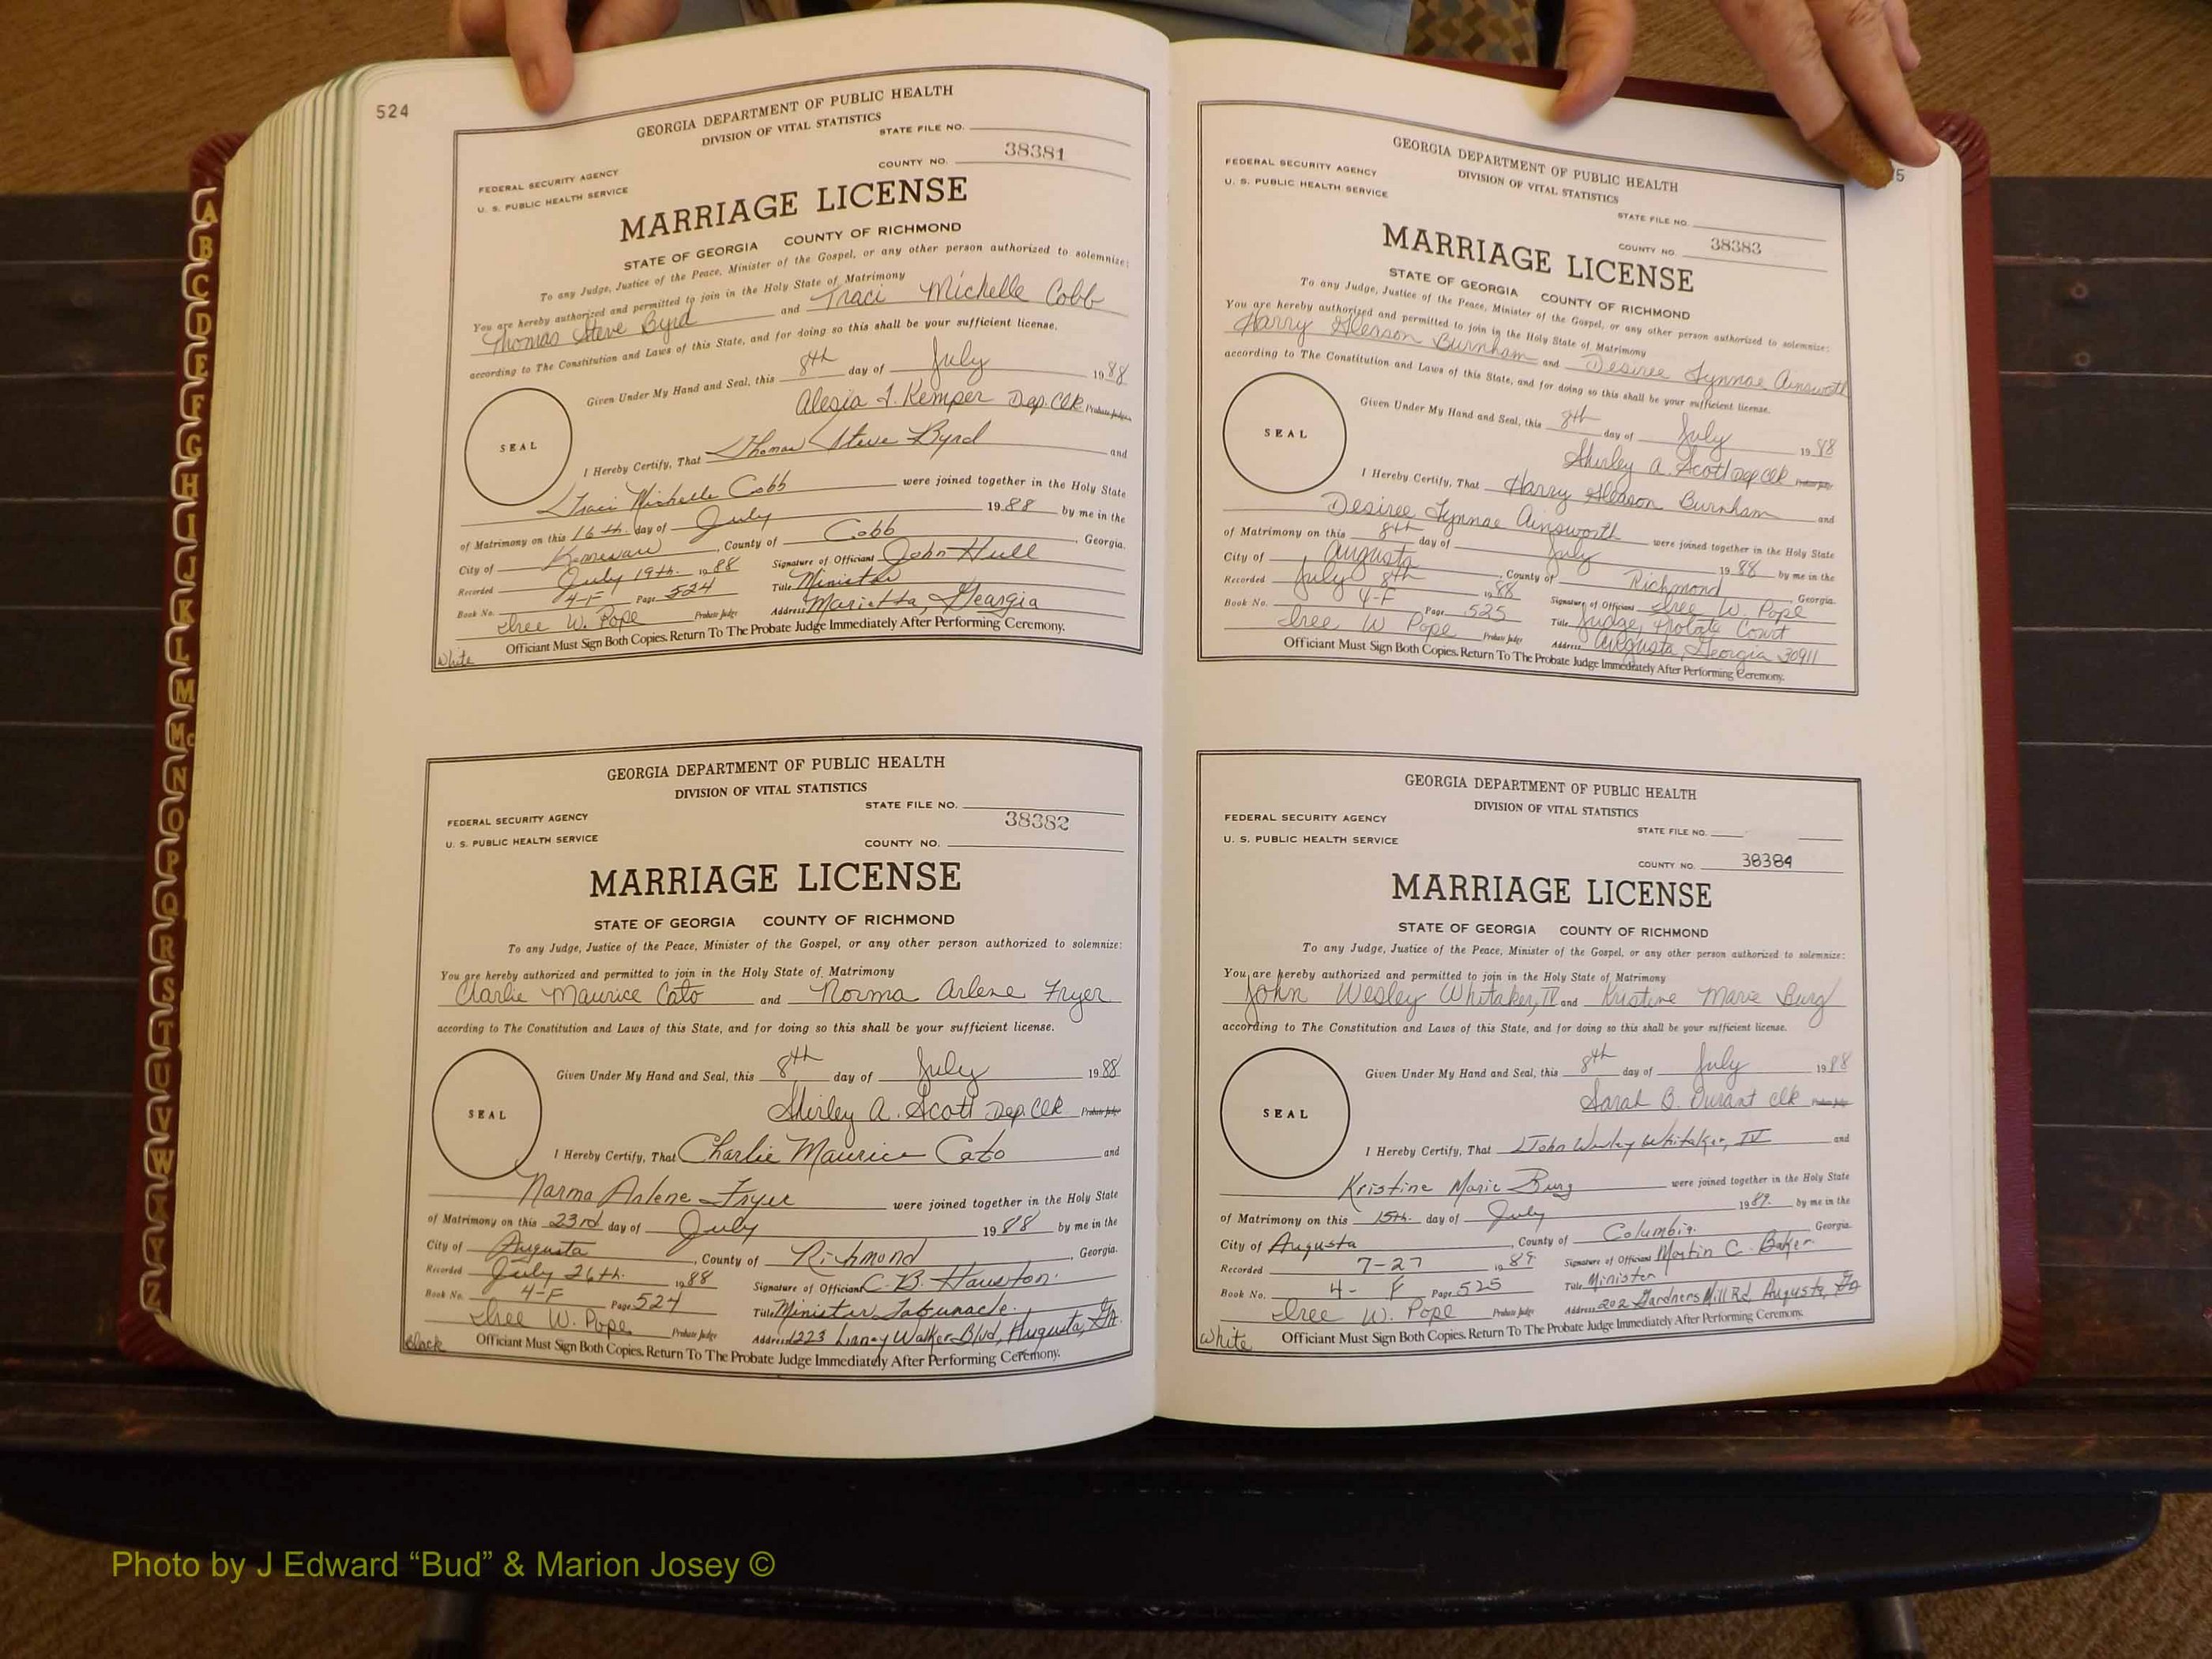 524
GEORGIA DEPARTMENT OF PUBLIC HEALTH
DIVISION OF VITAL STATISTICS
STATE FILE NO.
FEDERAL SECURITY AGENCY
COUNTY NO. 38381
U. S. PUBLIC HEALTH SERVICE
MARRIAGE LICENSE
STATE OF GEORGIA COUNTY OF RICHMOND
To any Judge, Justice of the Peace, Minister of the Gospel, or any other person authorized to solemnize:
You are hereby authorized and permitted to join in the Holy State of Matrimony
Thomas Steve Byrd and Traci Michelle Cobb
according to The Constitution and Laws of this State, and for doing so this shall be your sufficient license.
Given Under My Hand and Seal, this 8th day of July 1988
Alesia I. Kemper Dep. Clk Probate Judge
SEAL
I Hereby Certify, That Thomas Steve Byrd and
Traci Michelle Cobb were joined together in the Holy State
of Matrimony on this 16th. day of July 1988 by me in the
City of Kennesaw, County of Cobb, Georgia.
Recorded July 19th. 1988 Signature of Officiant John Hull
Book No. 4-F Page 524 Title Minister
Iree W. Pope Probate Judge Address Marietta, Georgia
Officiant Must Sign Both Copies. Return To The Probate Judge Immediately After Performing Ceremony.
White
GEORGIA DEPARTMENT OF PUBLIC HEALTH
DIVISION OF VITAL STATISTICS
STATE FILE NO.
FEDERAL SECURITY AGENCY
38382
U. S. PUBLIC HEALTH SERVICE
COUNTY NO.
MARRIAGE LICENSE
STATE OF GEORGIA COUNTY OF RICHMOND
To any Judge, Justice of the Peace, Minister of the Gospel, or any other person authorized to solemnize:
You are hereby authorized and permitted to join in the Holy State of Matrimony
Charlie Maurice Cato and Norma Arlene Fryer
according to The Constitution and Laws of this State, and for doing so this shall be your sufficient license.
Given Under My Hand and Seal, this 8th day of July 1988
Shirley A. Scott Dep. Clk Probate Judge
SEAL
I Hereby Certify, That Charlie Maurice Cato and
Norma Arlene Fryer were joined together in the Holy State
of Matrimony on this 23rd day of July 1988 by me in the
City of Augusta, County of Richmond, Georgia.
Recorded July 26th. 1988 Signature of Officiant C. B. Houston.
Book No. 4-F Page 524 Title Minister Tabernacle.
Iree W. Pope Probate Judge Address 1223 Laney Walker Blvd, Augusta, Ga.
Officiant Must Sign Both Copies. Return To The Probate Judge Immediately After Performing Ceremony.
Black
5
GEORGIA DEPARTMENT OF PUBLIC HEALTH
DIVISION OF VITAL STATISTICS
FEDERAL SECURITY AGENCY
U. S. PUBLIC HEALTH SERVICE
STATE FILE NO.
COUNTY NO. 38383
MARRIAGE LICENSE
STATE OF GEORGIA COUNTY OF RICHMOND
To any Judge, Justice of the Peace, Minister of the Gospel, or any other person authorized to solemnize:
You are hereby authorized and permitted to join in the Holy State of Matrimony
Harry Gleason Burnham and Desiree Lynnae Ainsworth
according to The Constitution and Laws of this State, and for doing so this shall be your sufficient license.
Given Under My Hand and Seal, this 8th day of July 1988
Shirley A. Scott Dep Clk Probate Judge
SEAL
I Hereby Certify, That Harry Gleason Burnham and
Desiree Lynnae Ainsworth were joined together in the Holy State
of Matrimony on this 8th day of July 1988 by me in the
City of Augusta, County of Richmond, Georgia.
Recorded July 8th 1988 Signature of Officiant Iree W. Pope
Book No. 4-F Page 525 Title Judge, Probate Court
Iree W Pope Probate Judge Address Augusta, Georgia 30911
Officiant Must Sign Both Copies. Return To The Probate Judge Immediately After Performing Ceremony.
GEORGIA DEPARTMENT OF PUBLIC HEALTH
DIVISION OF VITAL STATISTICS
FEDERAL SECURITY AGENCY
STATE FILE NO.
U. S. PUBLIC HEALTH SERVICE
COUNTY NO. 38384
MARRIAGE LICENSE
STATE OF GEORGIA COUNTY OF RICHMOND
To any Judge, Justice of the Peace, Minister of the Gospel, or any other person authorized to solemnize:
You are hereby authorized and permitted to join in the Holy State of Matrimony
John Wesley Whitaker, IV and Kristine Marie Burg
according to The Constitution and Laws of this State, and for doing so this shall be your sufficient license.
Given Under My Hand and Seal, this 8th day of July 1988
Sarah B. Durant Clk Probate Judge
SEAL
I Hereby Certify, That John Wesley Whitaker, IV and
Kristine Marie Burg were joined together in the Holy State
of Matrimony on this 15th. day of July 1989. by me in the
City of Augusta, County of Columbia. Georgia.
Recorded 7-27 1989 Signature of Officiant Martin C. Baker
Book No. 4-F Page 525 Title Minister
Iree W. Pope Probate Judge Address 202 Gardners Mill Rd, Augusta, Ga
Officiant Must Sign Both Copies. Return To The Probate Judge Immediately After Performing Ceremony.
White
A
B
C
D
E
F
G
H
I
J
K
L
M
Mc
N
O
P
Q
R
S
T
U
V
W
X
Y
Z
Photo by J Edward “Bud” & Marion Josey ©